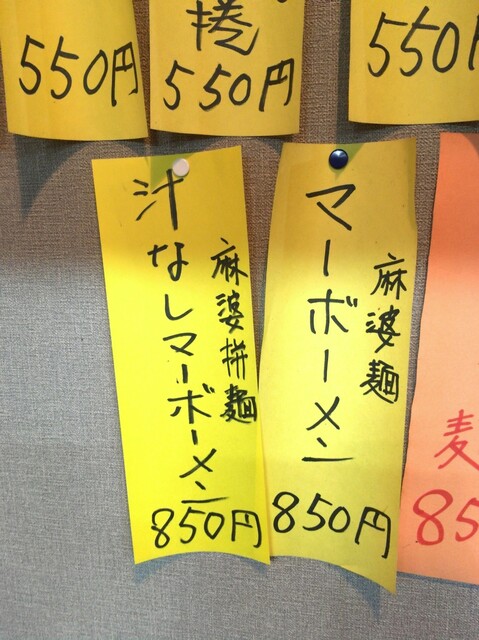 550円
捲
550円
550円
麻婆麺
マーボーメン
850円
麻婆拼麺
汁なしマーボーメン
850円
麦
85